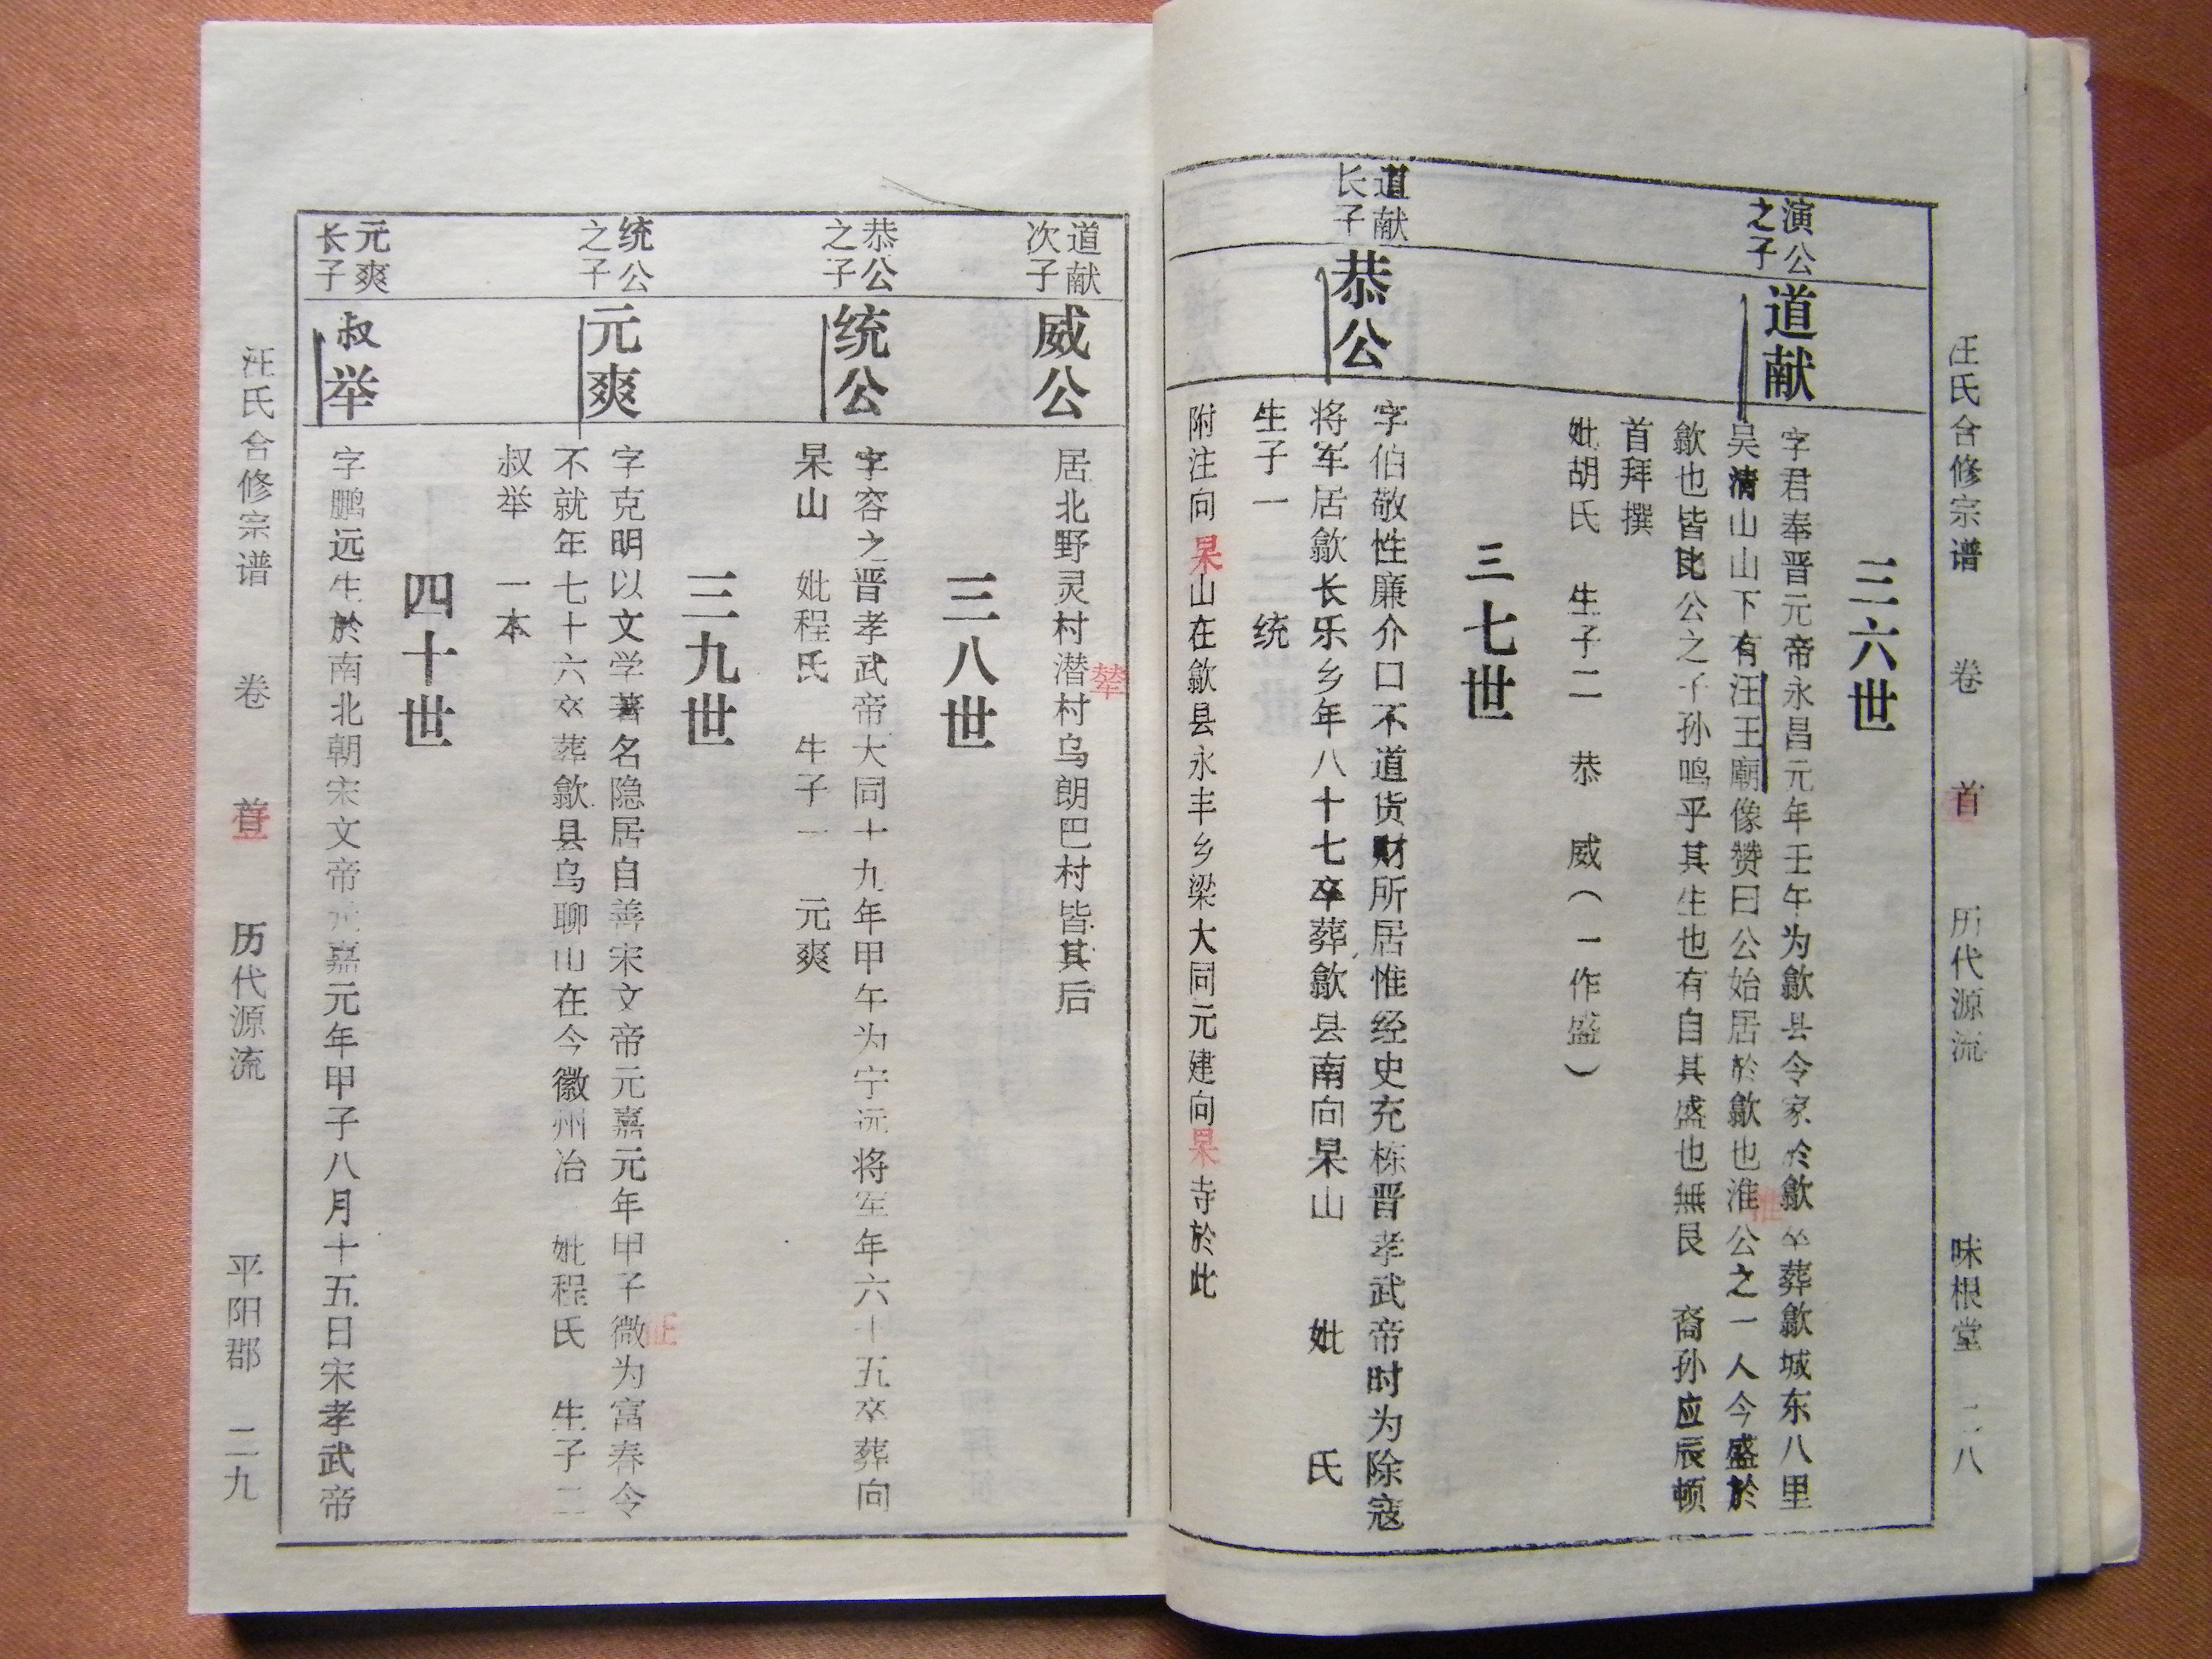 汪氏合修宗谱 卷 首 历代源流 味根堂 二八
三六世
演公
之子
道献
字君奉晋元帝永昌元年壬午为歙县令家於歙卒葬歙城东八里
吴清山山下有汪王廟像赞曰公始居於歙也淮公之一人今盛於
歙也皆比公之子孙鸣乎其生也有自其盛也無艮 裔孙应辰顿
首拜撰
妣胡氏 生子二 恭 威（一作盛）
三七世
道献
长子
恭公
字伯敬性廉介口不道货财所居惟经史充栋晋孝武帝时为除寇
将军居歙长乐乡年八十七卒葬歙县南向杲山 妣 氏
生子一 统
附注向杲山在歙县永丰乡梁大同元建向杲寺於此
道献
次子
威公
居北野灵村潜村乌朗巴村皆其后
三八世
恭公
之子
统公
字容之晋孝武帝大同十九年甲午为宁远将军年六十五卒葬向
杲山 妣程氏 生子一 元爽
三九世
统公
之子
元爽
字克明以文学著名隐居自善宋文帝元嘉元年甲子微为富春令
不就年七十六卒葬歙县乌聊山在今徽州冶 妣程氏 生子二
叔举 一本
四十世
元爽
长子
叔举
字鹏远生於南北朝宋文帝元嘉元年甲子八月十五日宋孝武帝
汪氏合修宗谱 卷 壹 历代源流 平阳郡 二九